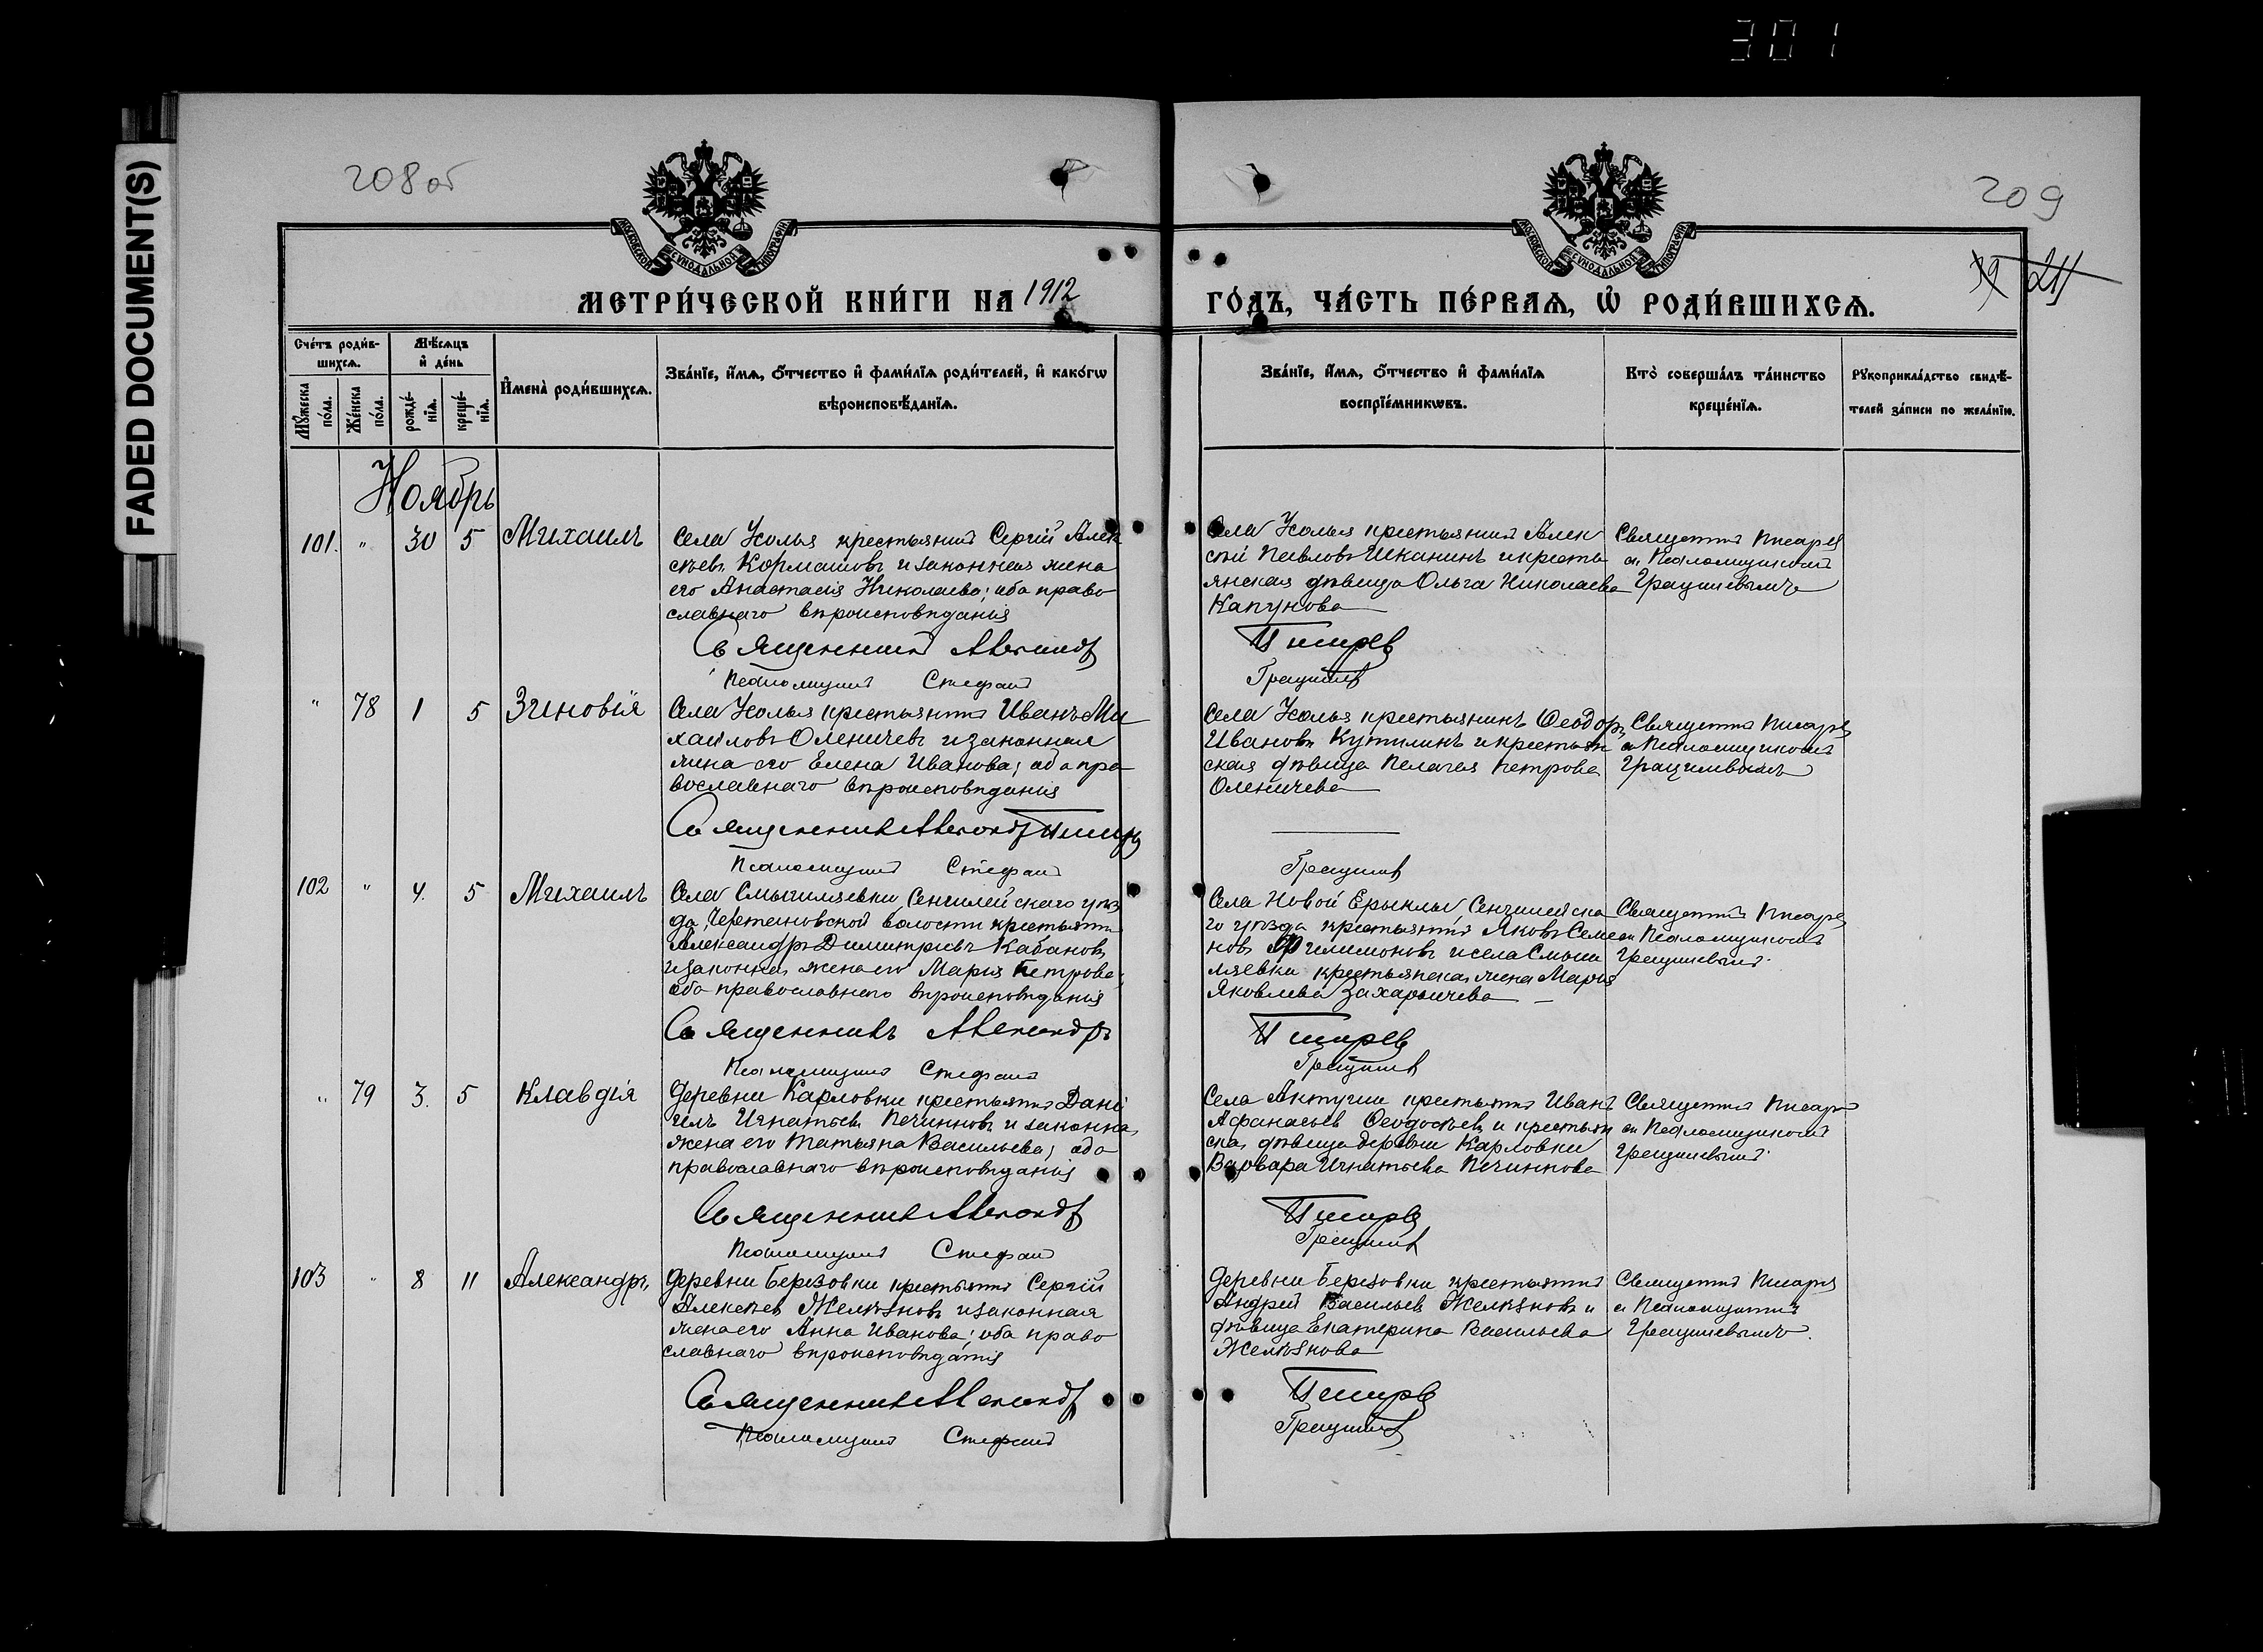 301
FADED DOCUMENT(S)
208 об
209
МОСКОВСКОЙ СѴНОДАЛЬНОЙ ТИПОГРАФІИ
МОСКОВСКОЙ СѴНОДАЛЬНОЙ ТИПОГРАФІИ
39 211
МЕТРИ́ЧЕСКОЙ КНИ́ГИ НА 1912
ГО́ДЪ, ЧА́СТЬ ПЕ́РВАѦ, Ѡ҆ РОДИ́ВШИХСѦ.
Сче́тъ роди́в-
шихсѧ.
Мꙋ́жеска
по́ла.
Же́нска
по́ла.
Мѣ́сѧцъ
и҆ де́нь
рожде́-
нїѧ.
креще́-
нїѧ.
И҆мена̀ роди́вшихсѧ.
Зва́нїе, и҆́мѧ, ѻ҆́тчество и҆ фами́лїѧ роди́телей, и҆ како́гѡ
вѣроисповѣ́данїѧ.
Зва́нїе, и҆́мѧ, ѻ҆́тчество и҆ фами́лїѧ
воспрїе́мникѡвъ.
Кто̀ соверша́лъ та́инство
креще́нїѧ.
Рꙋкоприкла́дство свидѣ́-
телей за́писи по жела́нїю.
Ноябрь
101. " 30 5 Михаилъ
Села Усолья крестьянинъ Сергій Алек
сѣевъ Кормашовъ и законная жена
его Анастасія Николаева; оба право
славнаго вѣроисповѣданія
Священникъ Александръ
Псаломщикъ Стефанъ
Села Усолья крестьянинъ Алек
сѣй Павловъ Шканинъ и кресть
янская дѣвица Ольга Николаева
Капунова
Священникъ
съ Псаломщикомъ
" 78 1 5 Зиновія
Села Усолья крестьянинъ Иванъ Ми
хаиловъ Оленичевъ и законная
жена его Елена Иванова; оба пра
вославнаго вѣроисповѣданія
Священникъ Александръ
Псаломщикъ Стефанъ
Села Усолья крестьянинъ Ѳеодоръ
Ивановъ Кутилинъ и крестьян
ская дѣвица Пелагея Петрова
Оленичева
Священникъ
съ Псаломщикомъ
102 " 4. 5 Михаилъ
Села Смышляевки Сенгилейскаго уѣз
да, Черетановской волости крестьянинъ
Александръ Димитріевъ Кабановъ
и законная жена его Марія Петрова;
оба православнаго вѣроисповѣданія
Священникъ Александръ
Псаломщикъ Стефанъ
Села Новой Ерыклы, Сенгилейска
го уѣзда крестьянинъ Яковъ Семе
новъ Филимоновъ и села Смыш
ляевки крестьянская жена Марія
Яковлева Захарычева
Священникъ
съ Псаломщикомъ
" 79 3. 5 Клавдія
Деревни Карловки крестьянинъ Дані
илъ Игнатьевъ Печинновъ и законная
жена его Татьяна Васильева; оба
православнаго вѣроисповѣданія
Священникъ Александръ
Псаломщикъ Стефанъ
Села Актуши крестьянинъ Иванъ
Афанасьевъ Ѳеодосьевъ и крестьян
ская дѣвица деревни Карловки
Варвара Игнатьева Печиннова
Священникъ
съ Псаломщикомъ
103 " 8 11 Александръ
Деревни Березовки крестьянинъ Сергій
Алексѣев Желѣзновъ и законная
жена его Анна Иванова; оба право
славнаго вѣроисповѣданія
Священникъ Александръ
Псаломщикъ Стефанъ
Деревни Березовки крестьянинъ
Андрей Васильевъ Желѣзновъ и
дѣвица Екатерина Васильева
Желѣзнова
Священникъ
съ Псаломщикомъ